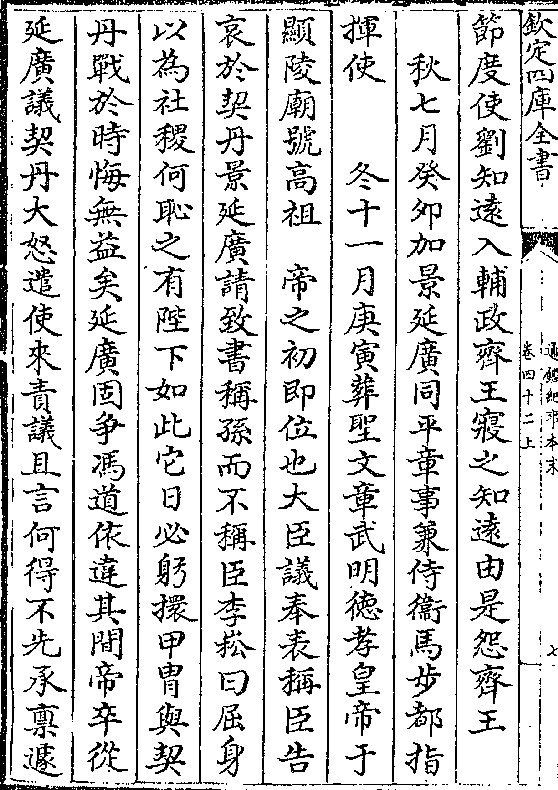 欽定四庫全書
通鑑紀事本末
卷四十二上
七
節度使劉知遠入輔政齊王寢之知遠由是怨齊王
秋七月癸卯加景延廣同平章事兼侍衞馬步都指
揮使　冬十一月庚寅葬聖文章武明徳孝皇帝于
顯陵廟號高祖　帝之初即位也大臣議奉表稱臣告
哀於契丹景延廣請致書稱孫而不稱臣李崧曰屈身
以為社稷何恥之有陛下如此它日必躬擐甲胄與契
丹戰於時悔無益矣延廣固爭馮道依違其間帝卒從
延廣議契丹大怒遣使來責議且言何得不先承禀遽